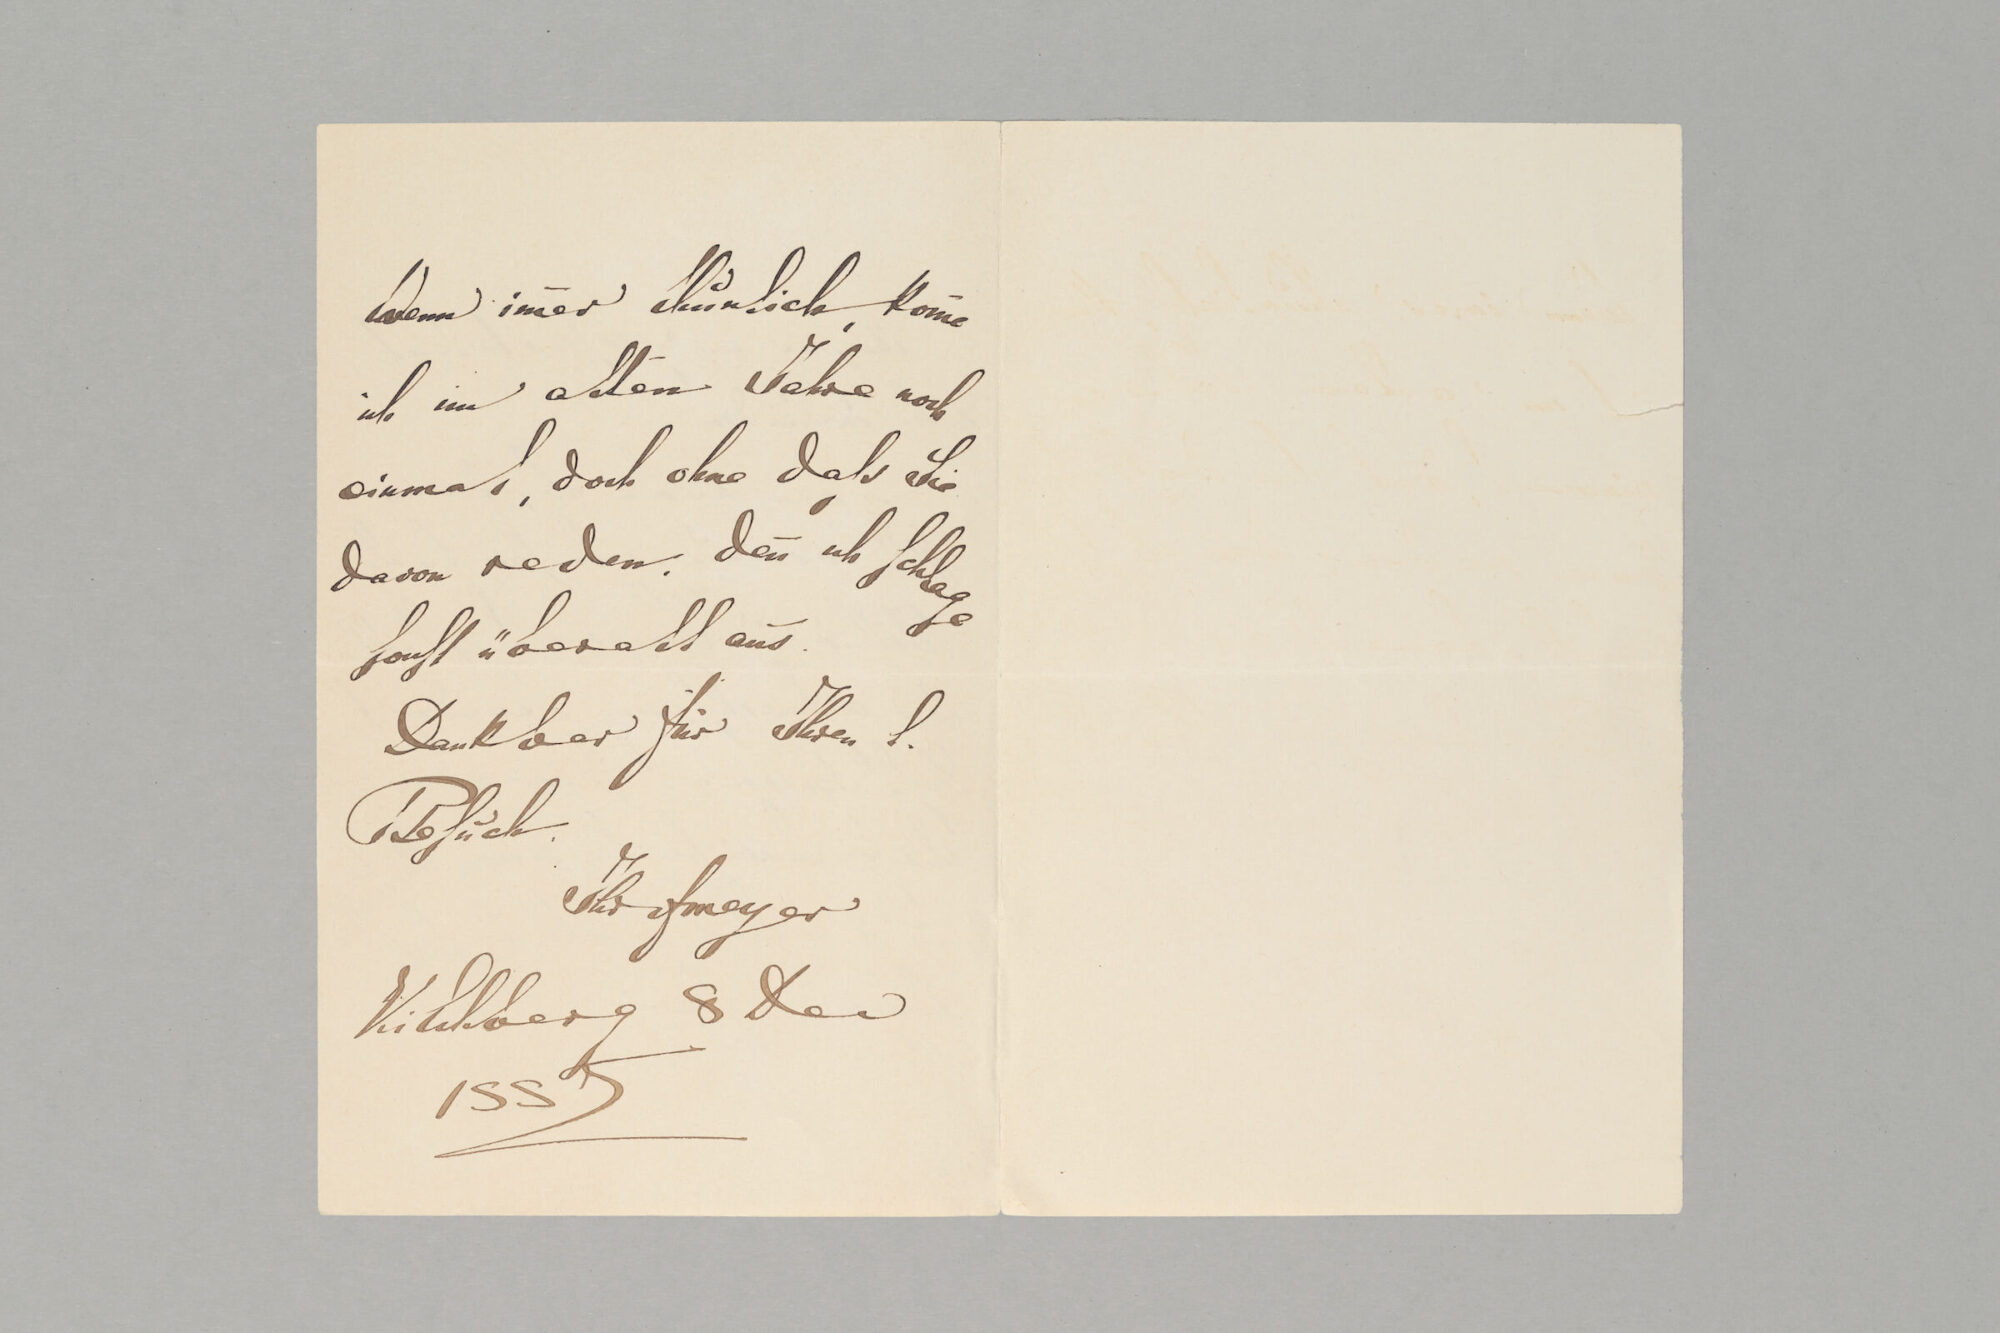 Wenn im̅er thunlich, kom̅e
ich im alten Jahre noch
einmal, doch ohne daß Sie
davon reden, den̅ ich schlage
sonst überall aus.
Dankbar für Ihren l.
Besuch.
Ihr fmeyer
Kilchberg 8 Dec
1885